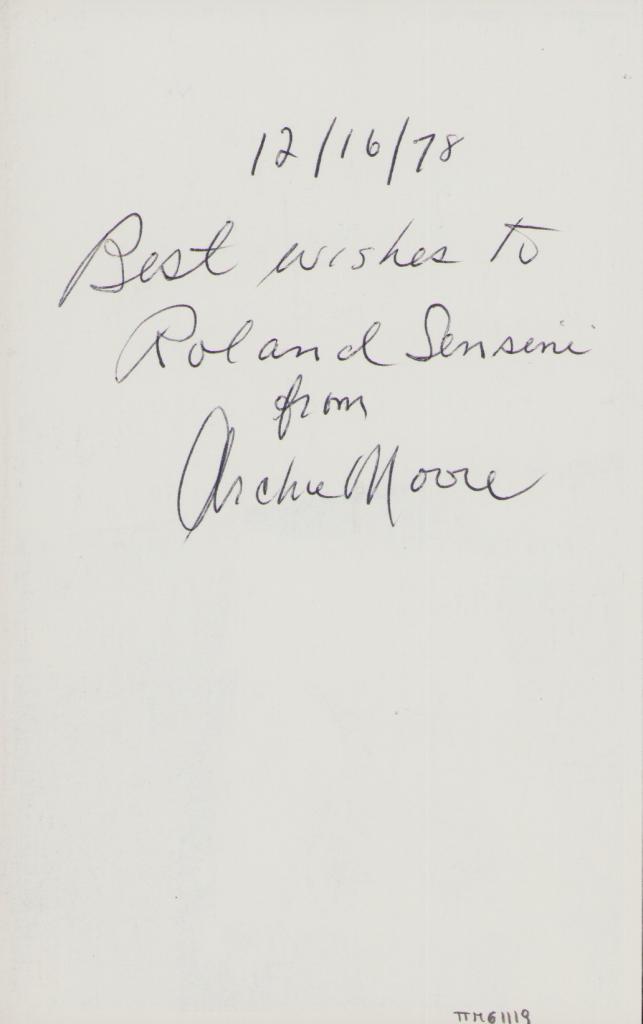 12/16/78
Best wishes to
Roland Sensini
from
Archie Moore
TTM61119